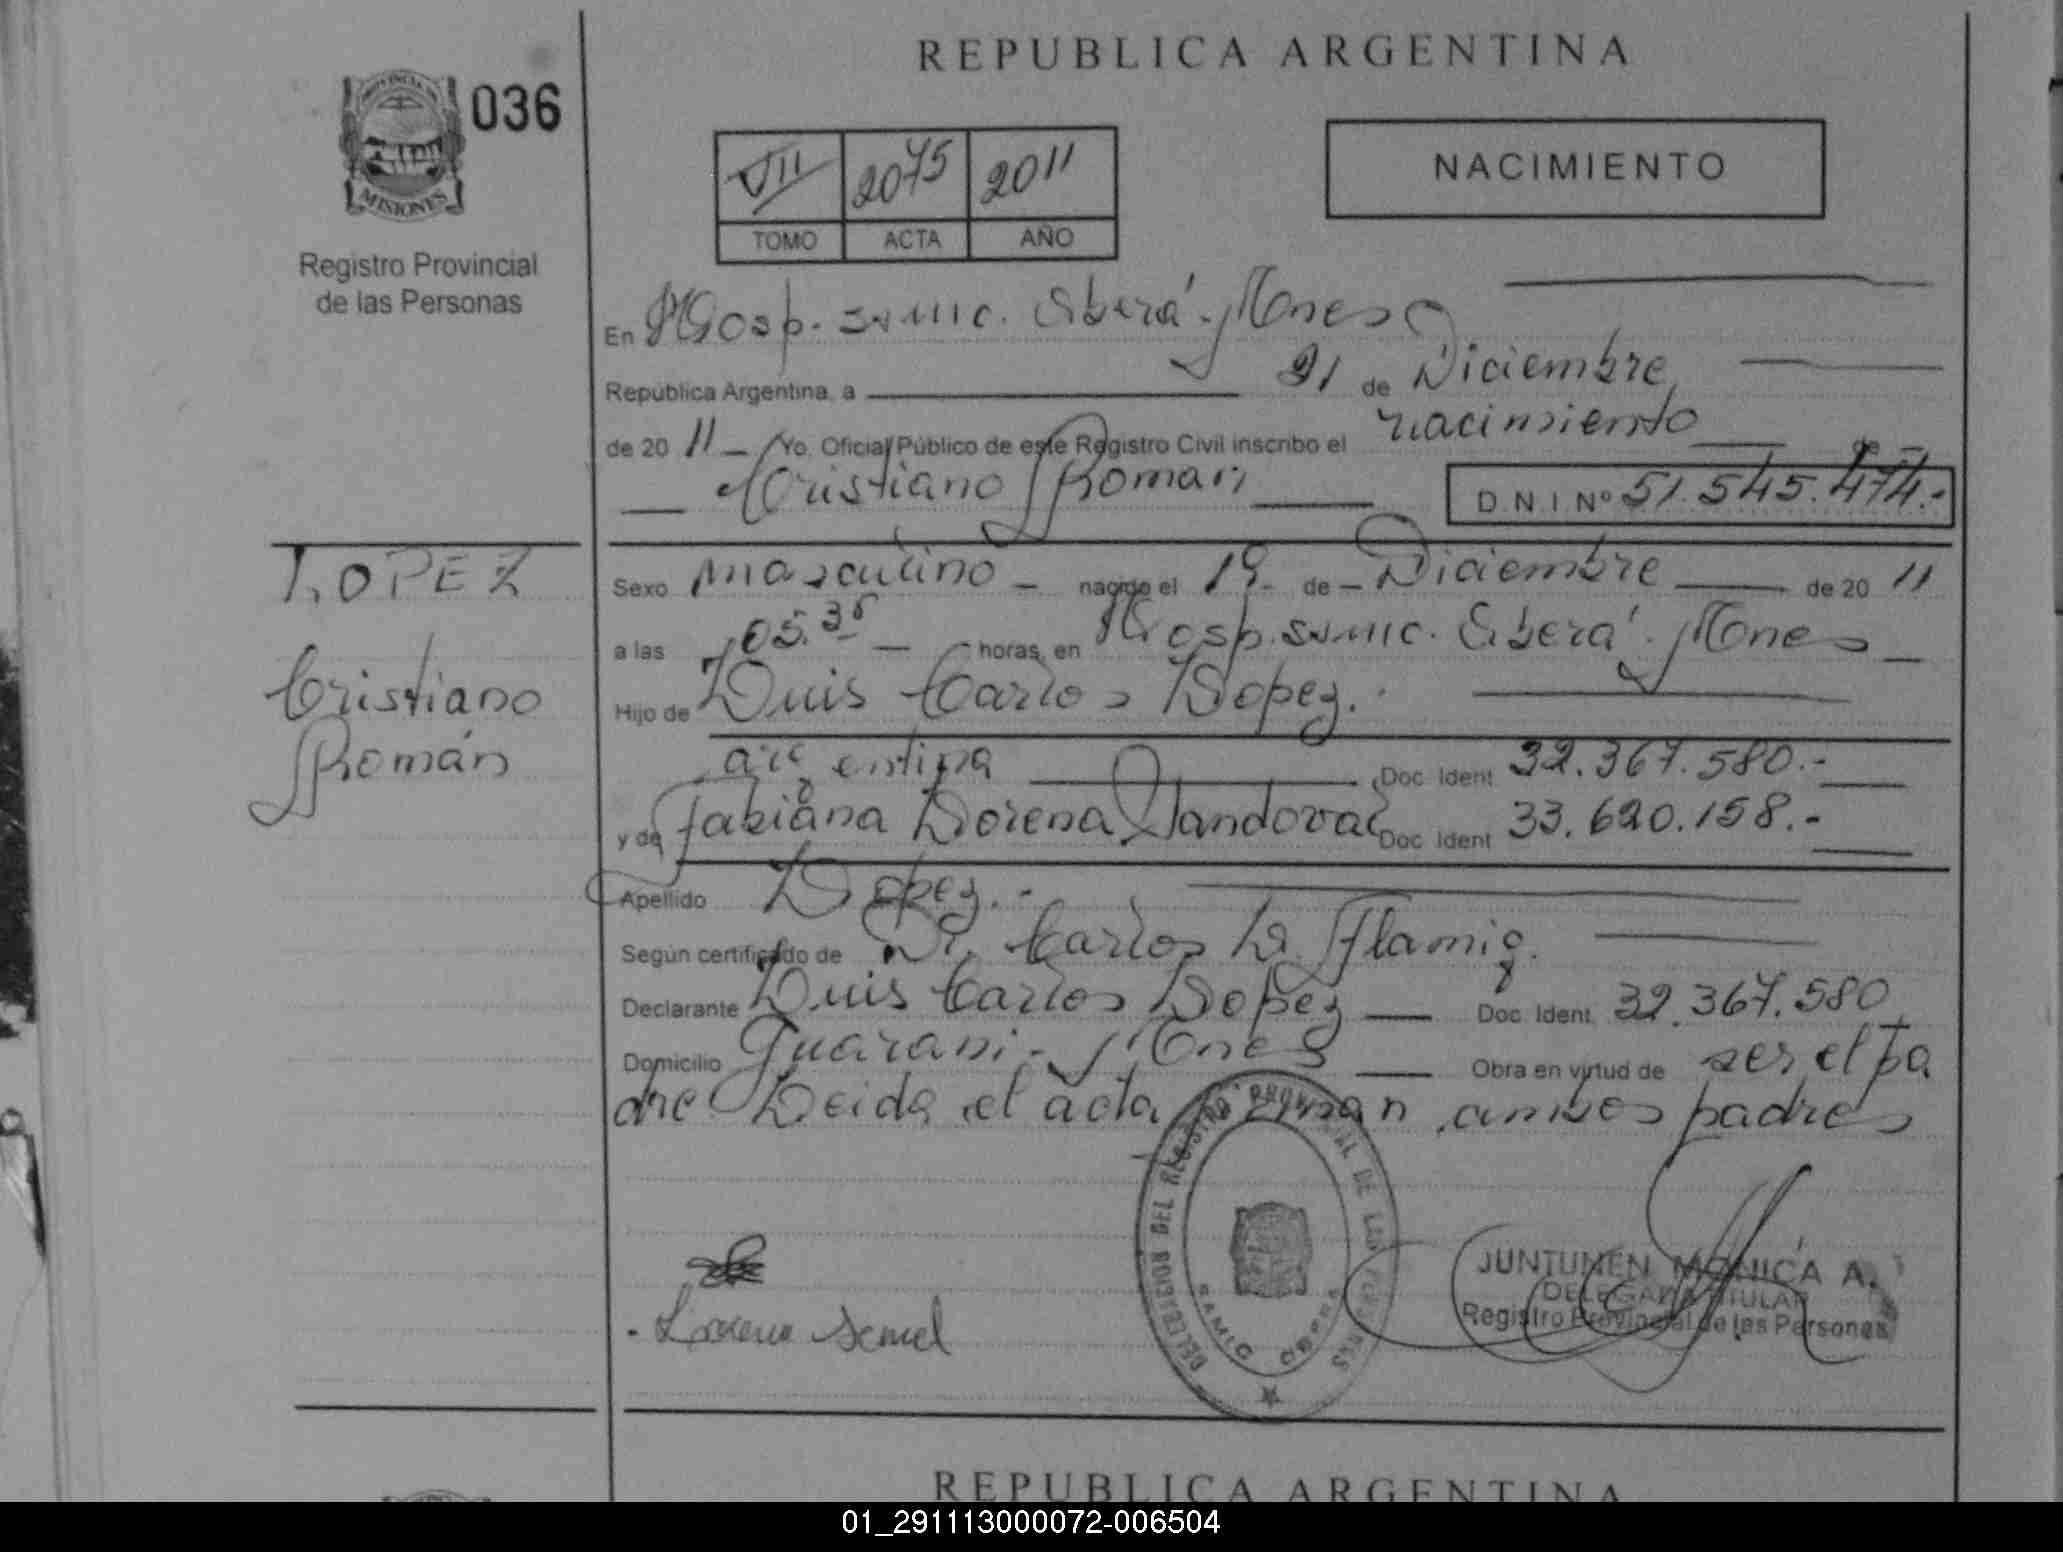 REPUBLICA ARGENTINA
PROVINCIA DE
MISIONES
036
Registro Provincial
de las Personas
VII 2075 2011
TOMO ACTA AÑO
NACIMIENTO
En Hosp. SAMIC. Oberá. Mnes
República Argentina, a 21 de Diciembre
de 20 11 Yo, Oficial Público de este Registro Civil inscribo el nacimiento de
Cristiano Roman D.N.I. Nº 51.545.474.-
LOPEZ
Cristiano
Román
Sexo masculino nacido el 19 de Diciembre de 20 11
a las 05.35 horas, en Hosp. SAMIC. Oberá. Mnes
Hijo de Luis Carlos Lopez.
argentina Doc. Ident 32.367.580.-
y de Fabiana Lorena Sandoval Doc. Ident 33.620.158.-
Apellido Lopez.-
Según certificado de Dr. Carlos D. Flamig.
Declarante Luis Carlos Lopez Doc. Ident. 32.367.580
Domicilio Guarani. Mnes Obra en virtud de ser el pa
dre Leida el acta firman ambos padres
DELEGACION DEL REGISTRO PROVINCIAL DE LAS PERSONAS
SAMIC OBERA
JUNTUNEN MONICA A.
DELEGADA TITULAR
Registro Provincial de las Personas
REPUBLICA ARGENTINA
01_291113000072-006504